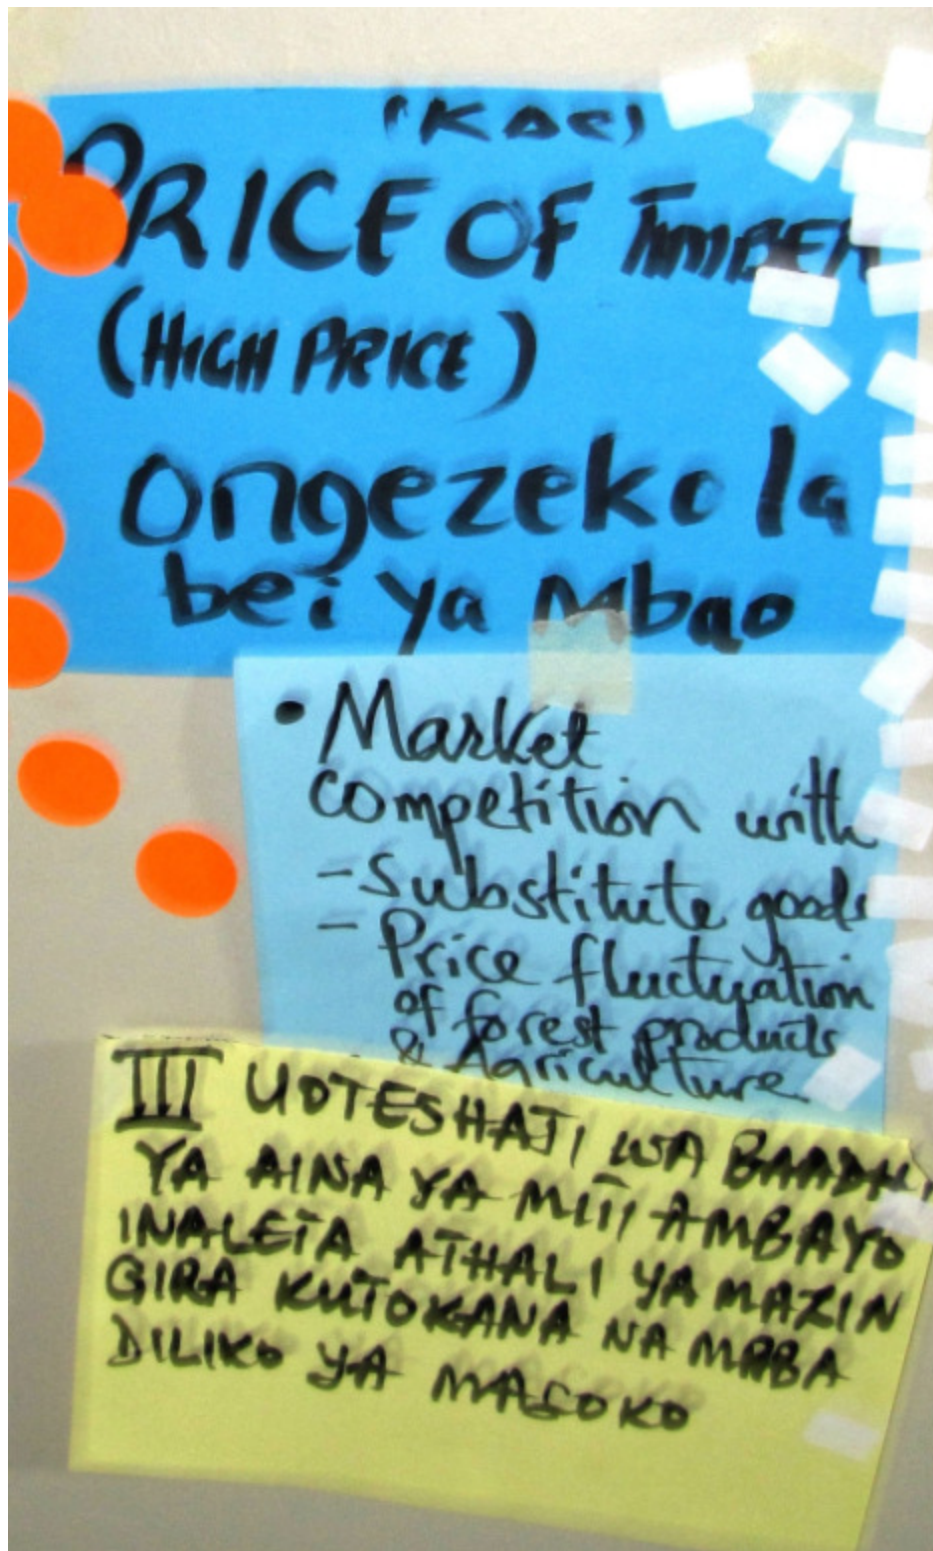 (KAC)
PRICE OF TIMBER
(HIGH PRICE)
ongezeko la
bei ya Mbao
• Market
competition with
- Substitute goods
- Price fluctuation
of forest products
& Agriculture
III UOTESHAJI WA BAADHI
YA AINA YA MITI AMBAYO
INALETA ATHALI YA MAZIN
GIRA KUTOKANA NA MABA
DILIKO YA MASOKO